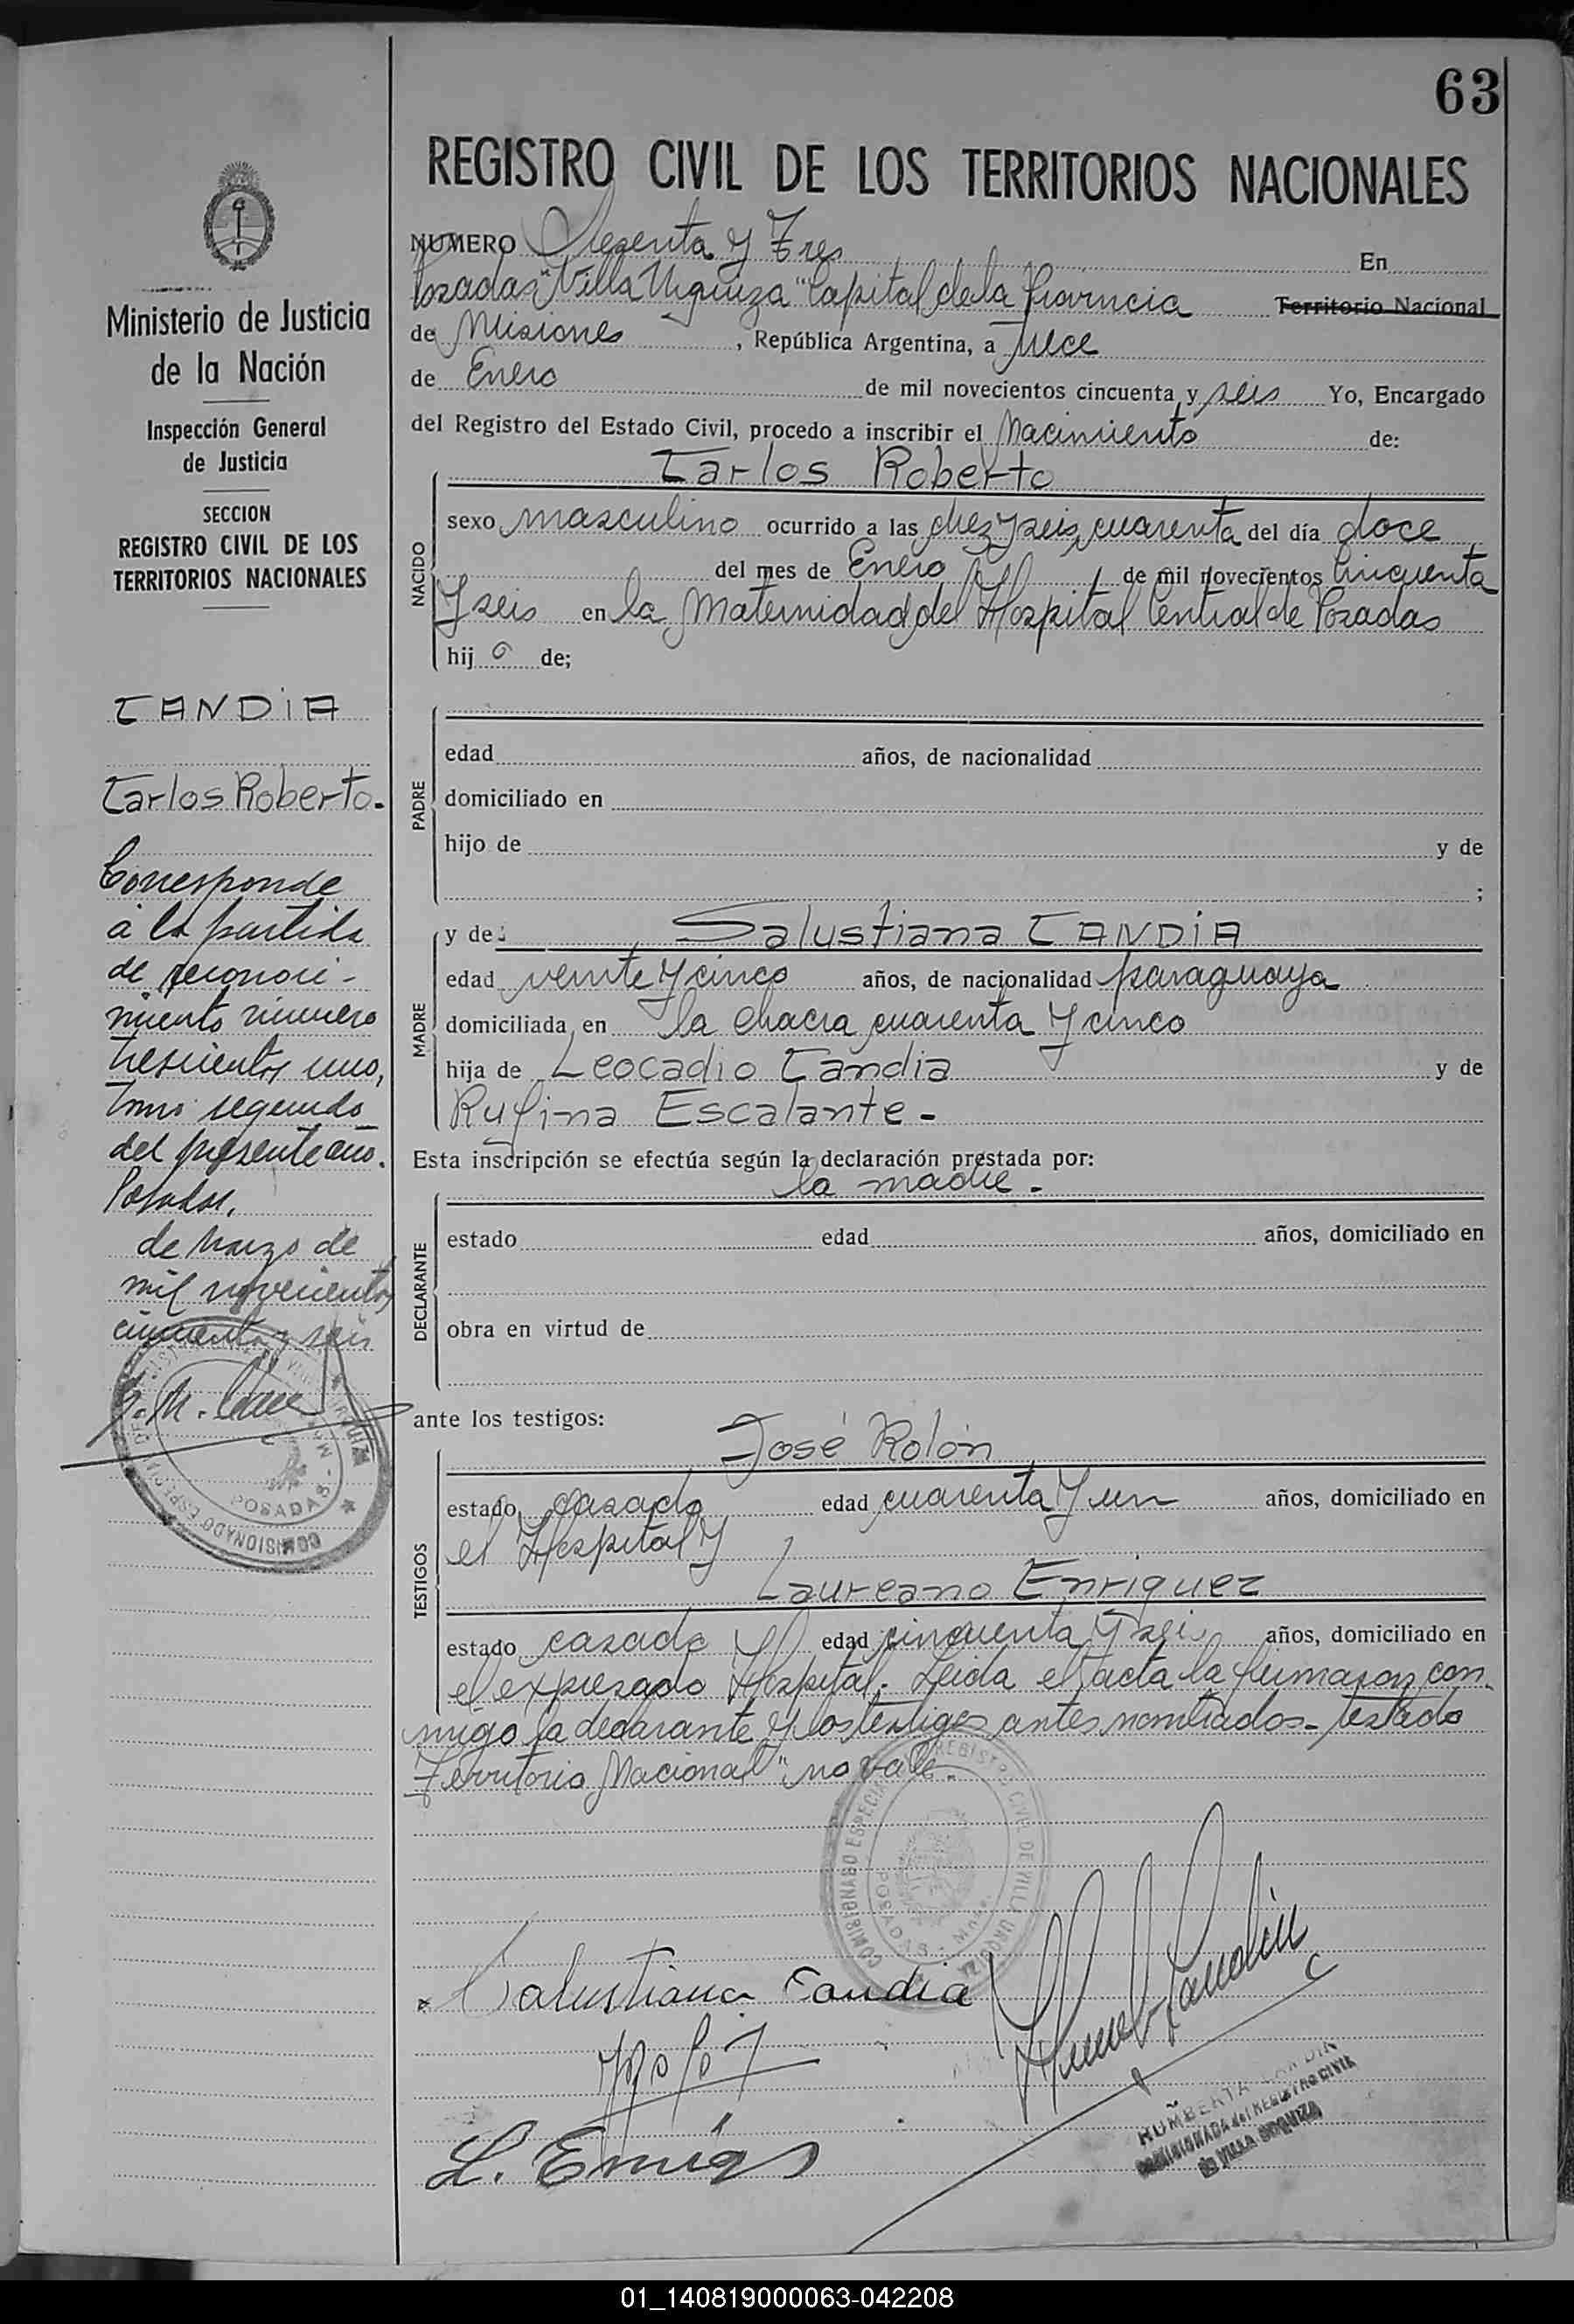 63
REGISTRO CIVIL DE LOS TERRITORIOS NACIONALES
NUMERO Sesenta y Tres En
Posadas "Villa Urquiza" Capital de la Provincia Territorio Nacional
de Misiones, República Argentina, a trece
de Enero de mil novecientos cincuenta y seis Yo, Encargado
del Registro del Estado Civil, procedo a inscribir el Nacimiento de:
Carlos Roberto
NACIDO
sexo masculino ocurrido a las diez y seis cuarenta del día doce
del mes de Enero de mil novecientos Cincuenta
y seis en la Maternidad del Hospital Central de Posadas
hijo de;
PADRE
edad años, de nacionalidad
domiciliado en
hijo de y de
;
MADRE
y de: Salustiana CANDIA
edad veinte y cinco años, de nacionalidad paraguaya
domiciliada en la chacra cuarenta y cinco
hija de Leocadio Candia y de
Rufina Escalante -
Esta inscripción se efectúa según la declaración prestada por:
la madre -
DECLARANTE
estado edad años, domiciliado en
obra en virtud de
ante los testigos:
TESTIGOS
José Rolón
estado casado edad cuarenta y un años, domiciliado en
el Hospital y
Laureano Enriquez
estado casado edad cincuenta y seis años, domiciliado en
el expresado Hospital. Leida el acta la firmaron con-
migo la declarante y los testigos antes nombrados - testado
Territorio Nacional" no vale -
COMISIONADO ESPECIAL REGISTRO CIVIL DE VILLA URQUIZA
POSADAS - Mnes.
Salustiana Candia
HUMBERTA CANDIA
COMISIONADA del REGISTRO CIVIL
de VILLA URQUIZA
Ministerio de Justicia
de la Nación
Inspección General
de Justicia
SECCION
REGISTRO CIVIL DE LOS
TERRITORIOS NACIONALES
CANDIA
Carlos Roberto.-
Corresponde
a la partida
de reconoci-
miento número
trescientos uno,
tomo segundo
del presente año.
Posadas,
de Marzo de
mil novecientos
cincuenta y seis
COMISIONADO ESPECIAL
POSADAS - Mnes.
01_140819000063-042208